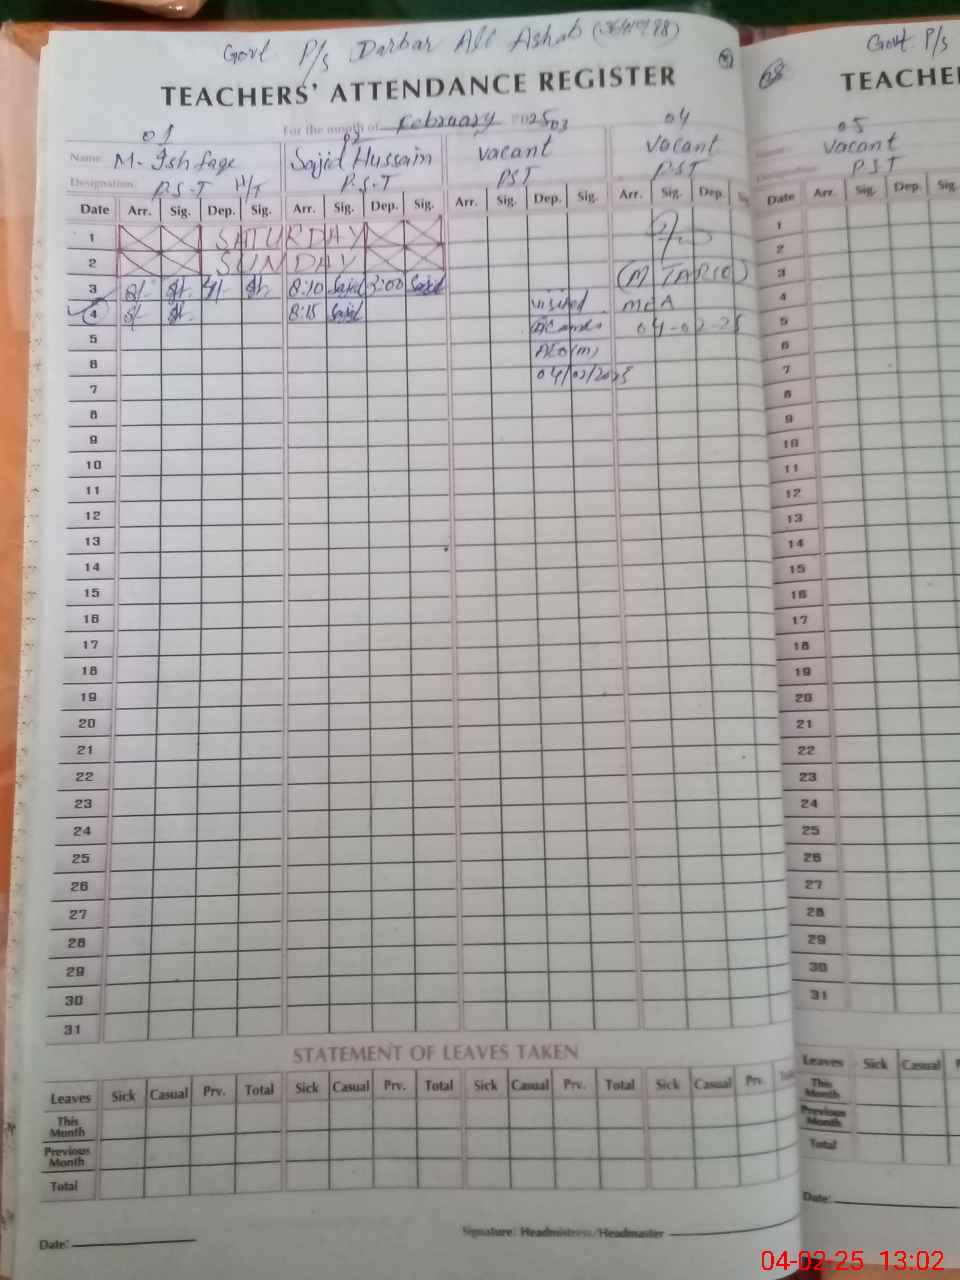 Govt P/s Darbar All Ashab
TEACHERS' ATTENDANCE REGISTER
For the month of February 2025
01 02 03 04
Name: M. Ishfaqe Sajid Hussain vacant vacant
Designation: P.S.T H/T P.S.T PST PST
Date Arr. Sig. Dep. Sig. Arr. Sig. Dep. Sig. Arr. Sig. Dep. Sig. Arr. Sig. Dep.
1 SATURDAY
2 SUNDAY (M TARIQ)
3 8:10 Sajid 3:00 Sajid visited MEA
4 8:15 Sajid 04-02-25
5 AEO(m)
6 04/02/2025
7
8
9
10
11
12
13
14
15
16
17
18
19
20
21
22
23
24
25
26
27
28
29
30
31
STATEMENT OF LEAVES TAKEN
Leaves Sick Casual Prv. Total Sick Casual Prv. Total Sick Casual Prv. Total Sick Casual Prv.
This Month
Previous Month
Total
Date: Signature: Headmistress/Headmaster
Govt P/s
68
TEACHE
05
vacant
PST
Date Arr. Sig. Dep. Sig.
1
2
3
4
5
6
7
8
9
10
11
12
13
14
15
16
17
18
19
20
21
22
23
24
25
26
27
28
29
30
31
Leaves Sick Casual
This Month
Previous Month
Total
Date:
04-02-25 13:02